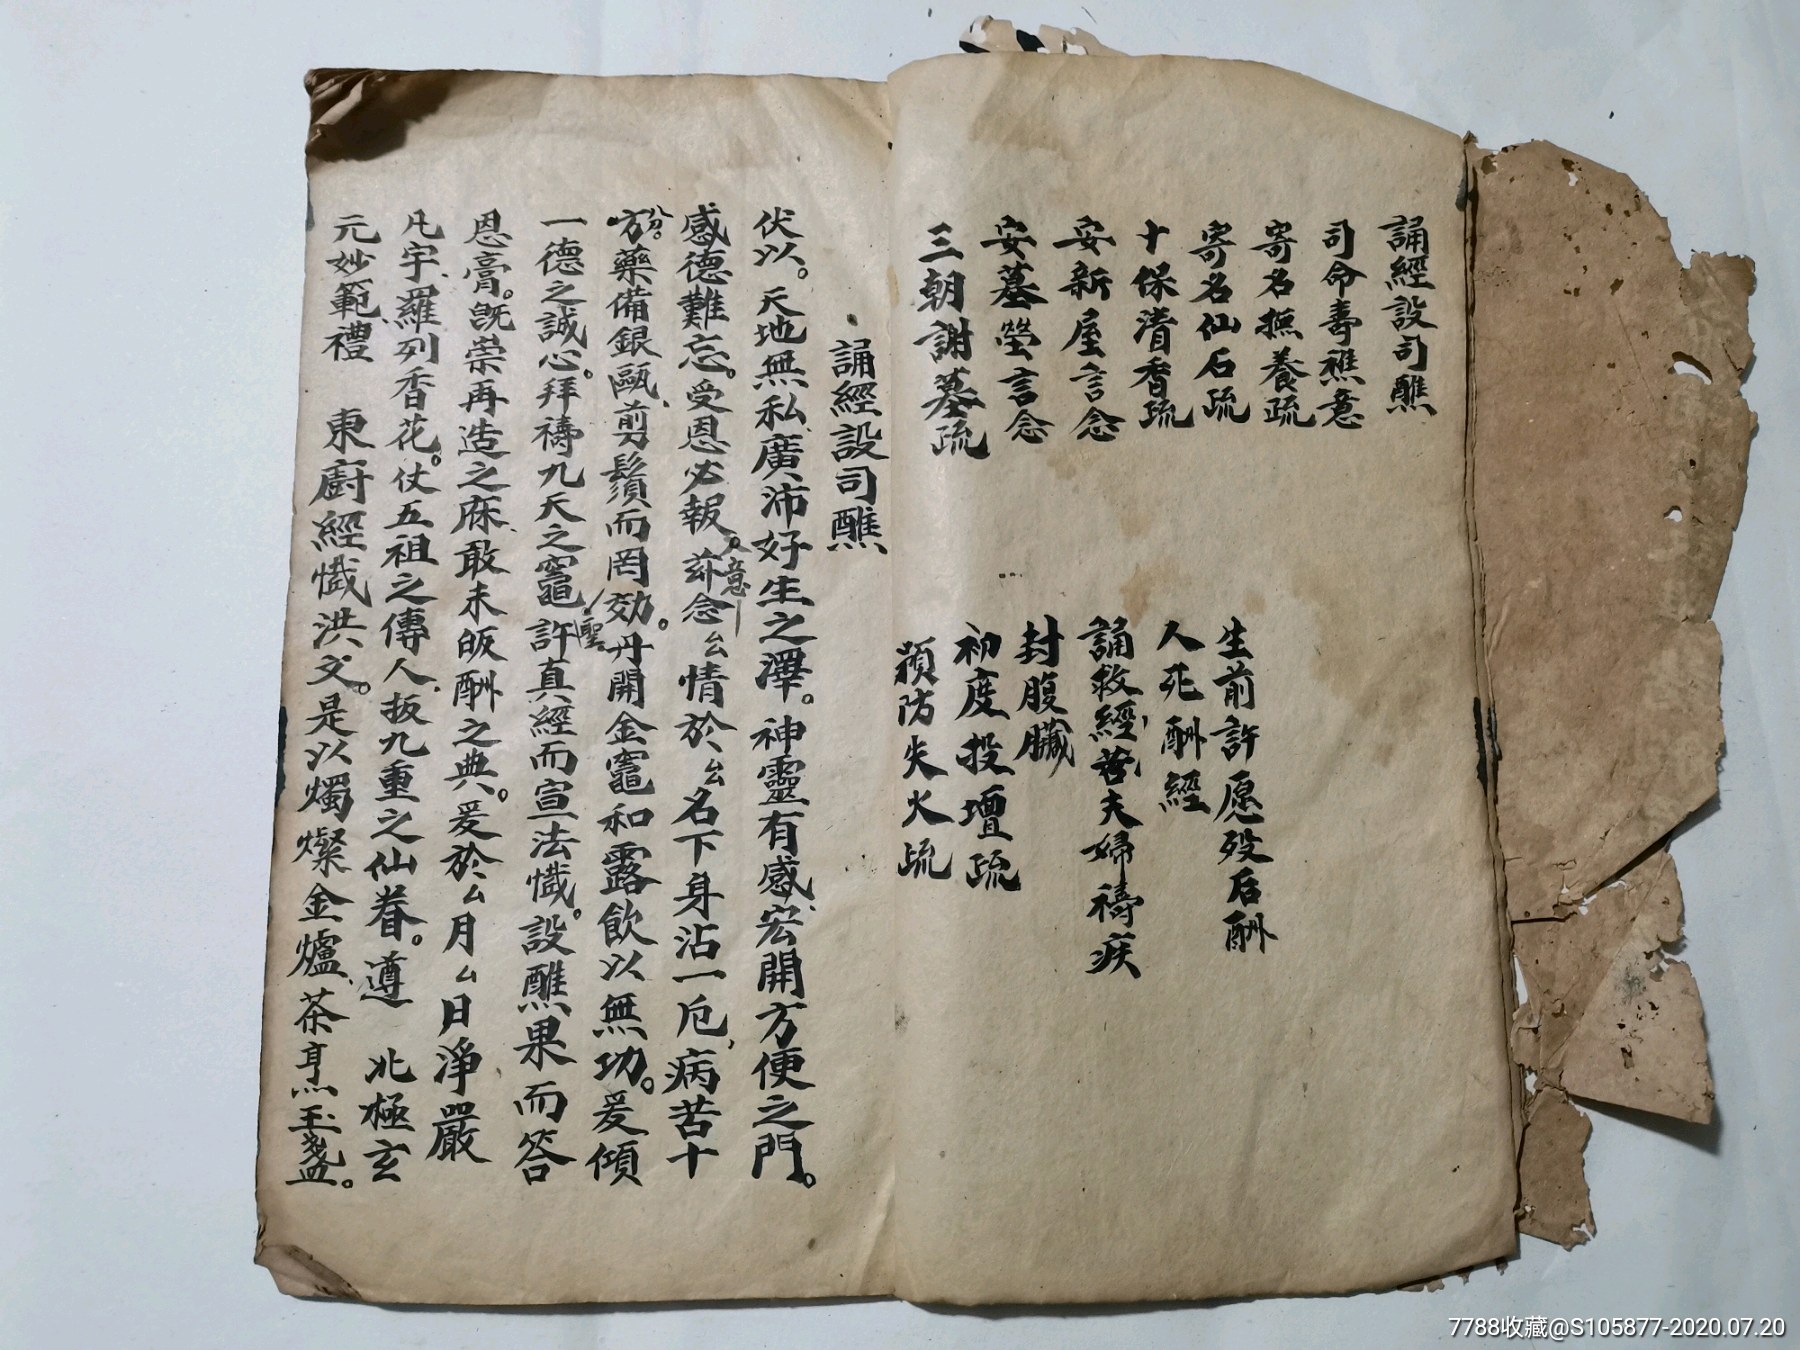 誦經設司醮
司命壽禚意
寄名撫養疏
寄名仙石疏
十保清香疏
安新屋言念
安墓塋言念
三朝謝墓疏
生前許愿殁后酬
人死酬經
誦救經苦夫婦禱疾
封腹臟
初度投壇疏
預防失火疏
誦經設司醮
伏以。天地無私廣沛好生之澤。神靈有感、宏開方便之門。
感德難忘。受恩必報。茲念厶情於厶名下身沾一厄、病苦十
入意
分。
方。藥備銀甌、剪鬚而罔効。丹開金竈和露飲以無功。爰傾
一德之誠心。拜禱九天之竈許真經而宣法懺。設醮果而答
聖。
恩膏。既荣再造之庥、敢未皈酬之典。爰於厶月厶日淨嚴
凡宇羅列香花。仗五祖之傳人、扳九重之仙眷。遵 北極玄
元妙範禮 東廚經懺洪文。是以燭燦金爐、茶烹玉盞。
7788收藏@S105877-2020.07.20